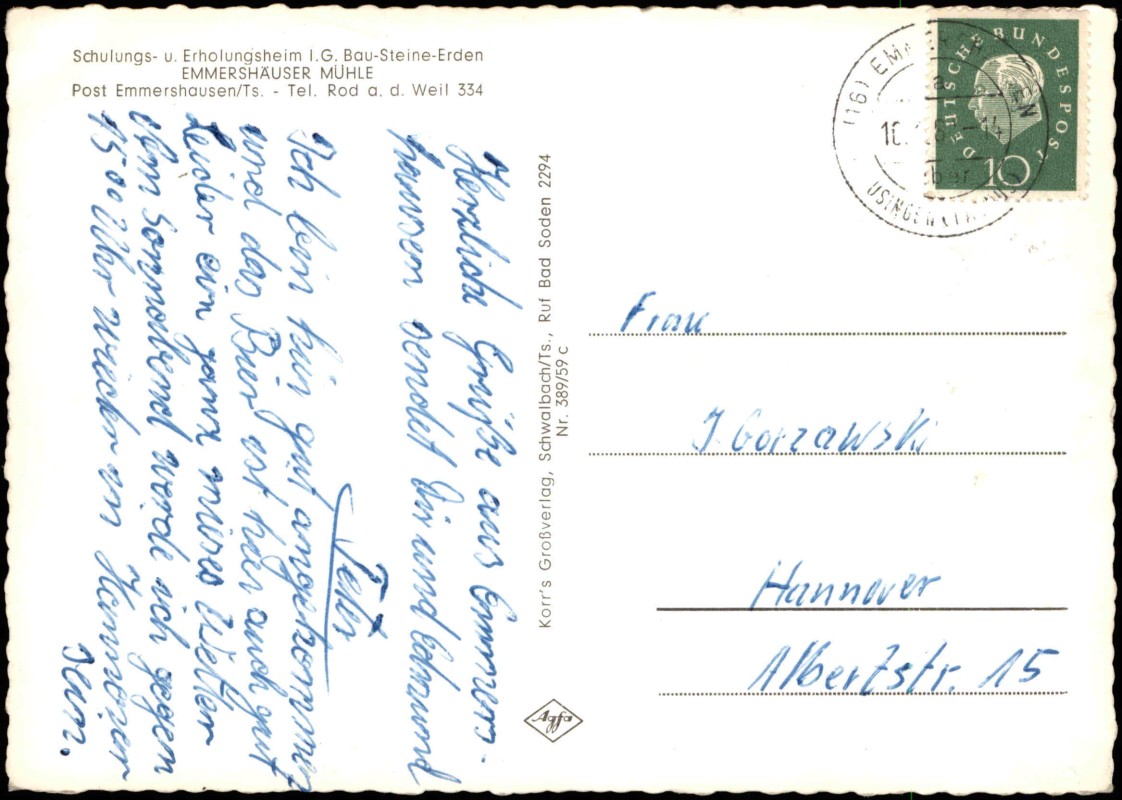 Schulungs- u. Erholungsheim I.G. Bau-Steine-Erden
EMMERSHÄUSER MÜHLE
Post Emmershausen/Ts. - Tel. Rod a. d. Weil 334
Herzliche Grüße aus Emmers-
hausen sendet Dir und Edmund
Peter
Ich bin hier gut angekommen
und das Bier ist hier auch gut
Leider ein ganz mieses Wetter
Am Sonnabend werde ich gegen
15 00 Uhr wieder in Hannover
sein.
Korr's Großverlag, Schwalbach/Ts., Ruf Bad Soden 2294
Nr. 389/59 c
Agfa
DEUTSCHE BUNDESPOST
10
(16) EMMERSHAUSEN
USINGEN (TAUNUS)
Frau
J. Gorzawski
Hannover
Albertstr. 15